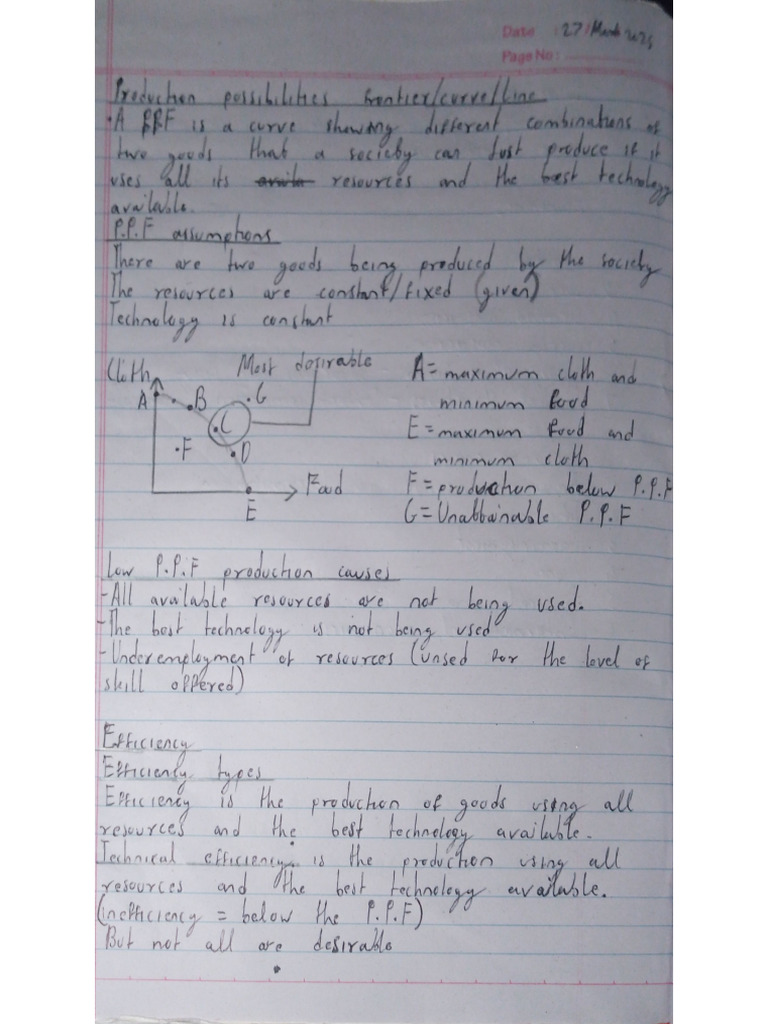 Date : 27/March 2025
Page No:
Production possibilities frontier/curve/line
·A PPF is a curve showing different combinations of
two goods that a society can just produce if it
uses all its resources and the best technology
available.
P.P.F assumptions
There are two goods being produced by the society
The resources are constant/fixed (given)
Technology is constant
Cloth
Most desirable
A
B
G
C
·F
D
Food
E
A= maximum cloth and
minimum food
E = maximum food and
minimum cloth
F = production below P.P.F
G = Unattainable P.P.F
Low P.P.F production causes
-All available resources are not being used.
-The best technology is not being used
-Underemployment of resources (unsed for the level of
skill offered)
Efficiency
Efficiency types
Efficiency is the production of goods using all
resources and the best technology available.
Technical efficiency is the production using all
resources and the best technology available.
(inefficiency = below the P.P.F)
But not all are desirable